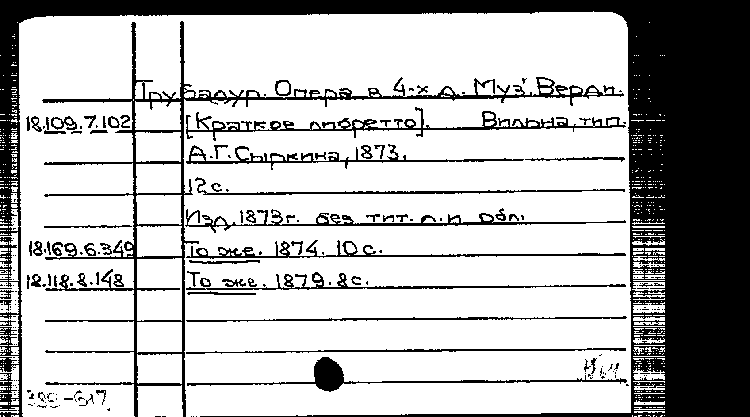 Трубадур. Опера в 4-х д. Муз. Верди.
18.109.7.102 [Краткое либретто]. Вильна, тип.
А.Г. Сыркина, 1873.
12 с.
Изд. 1873 г. без тит. л. и обл.
18.169.6.349 То же. 1874. 10 с.
18.118.8.148 То же. 1879. 8 с.